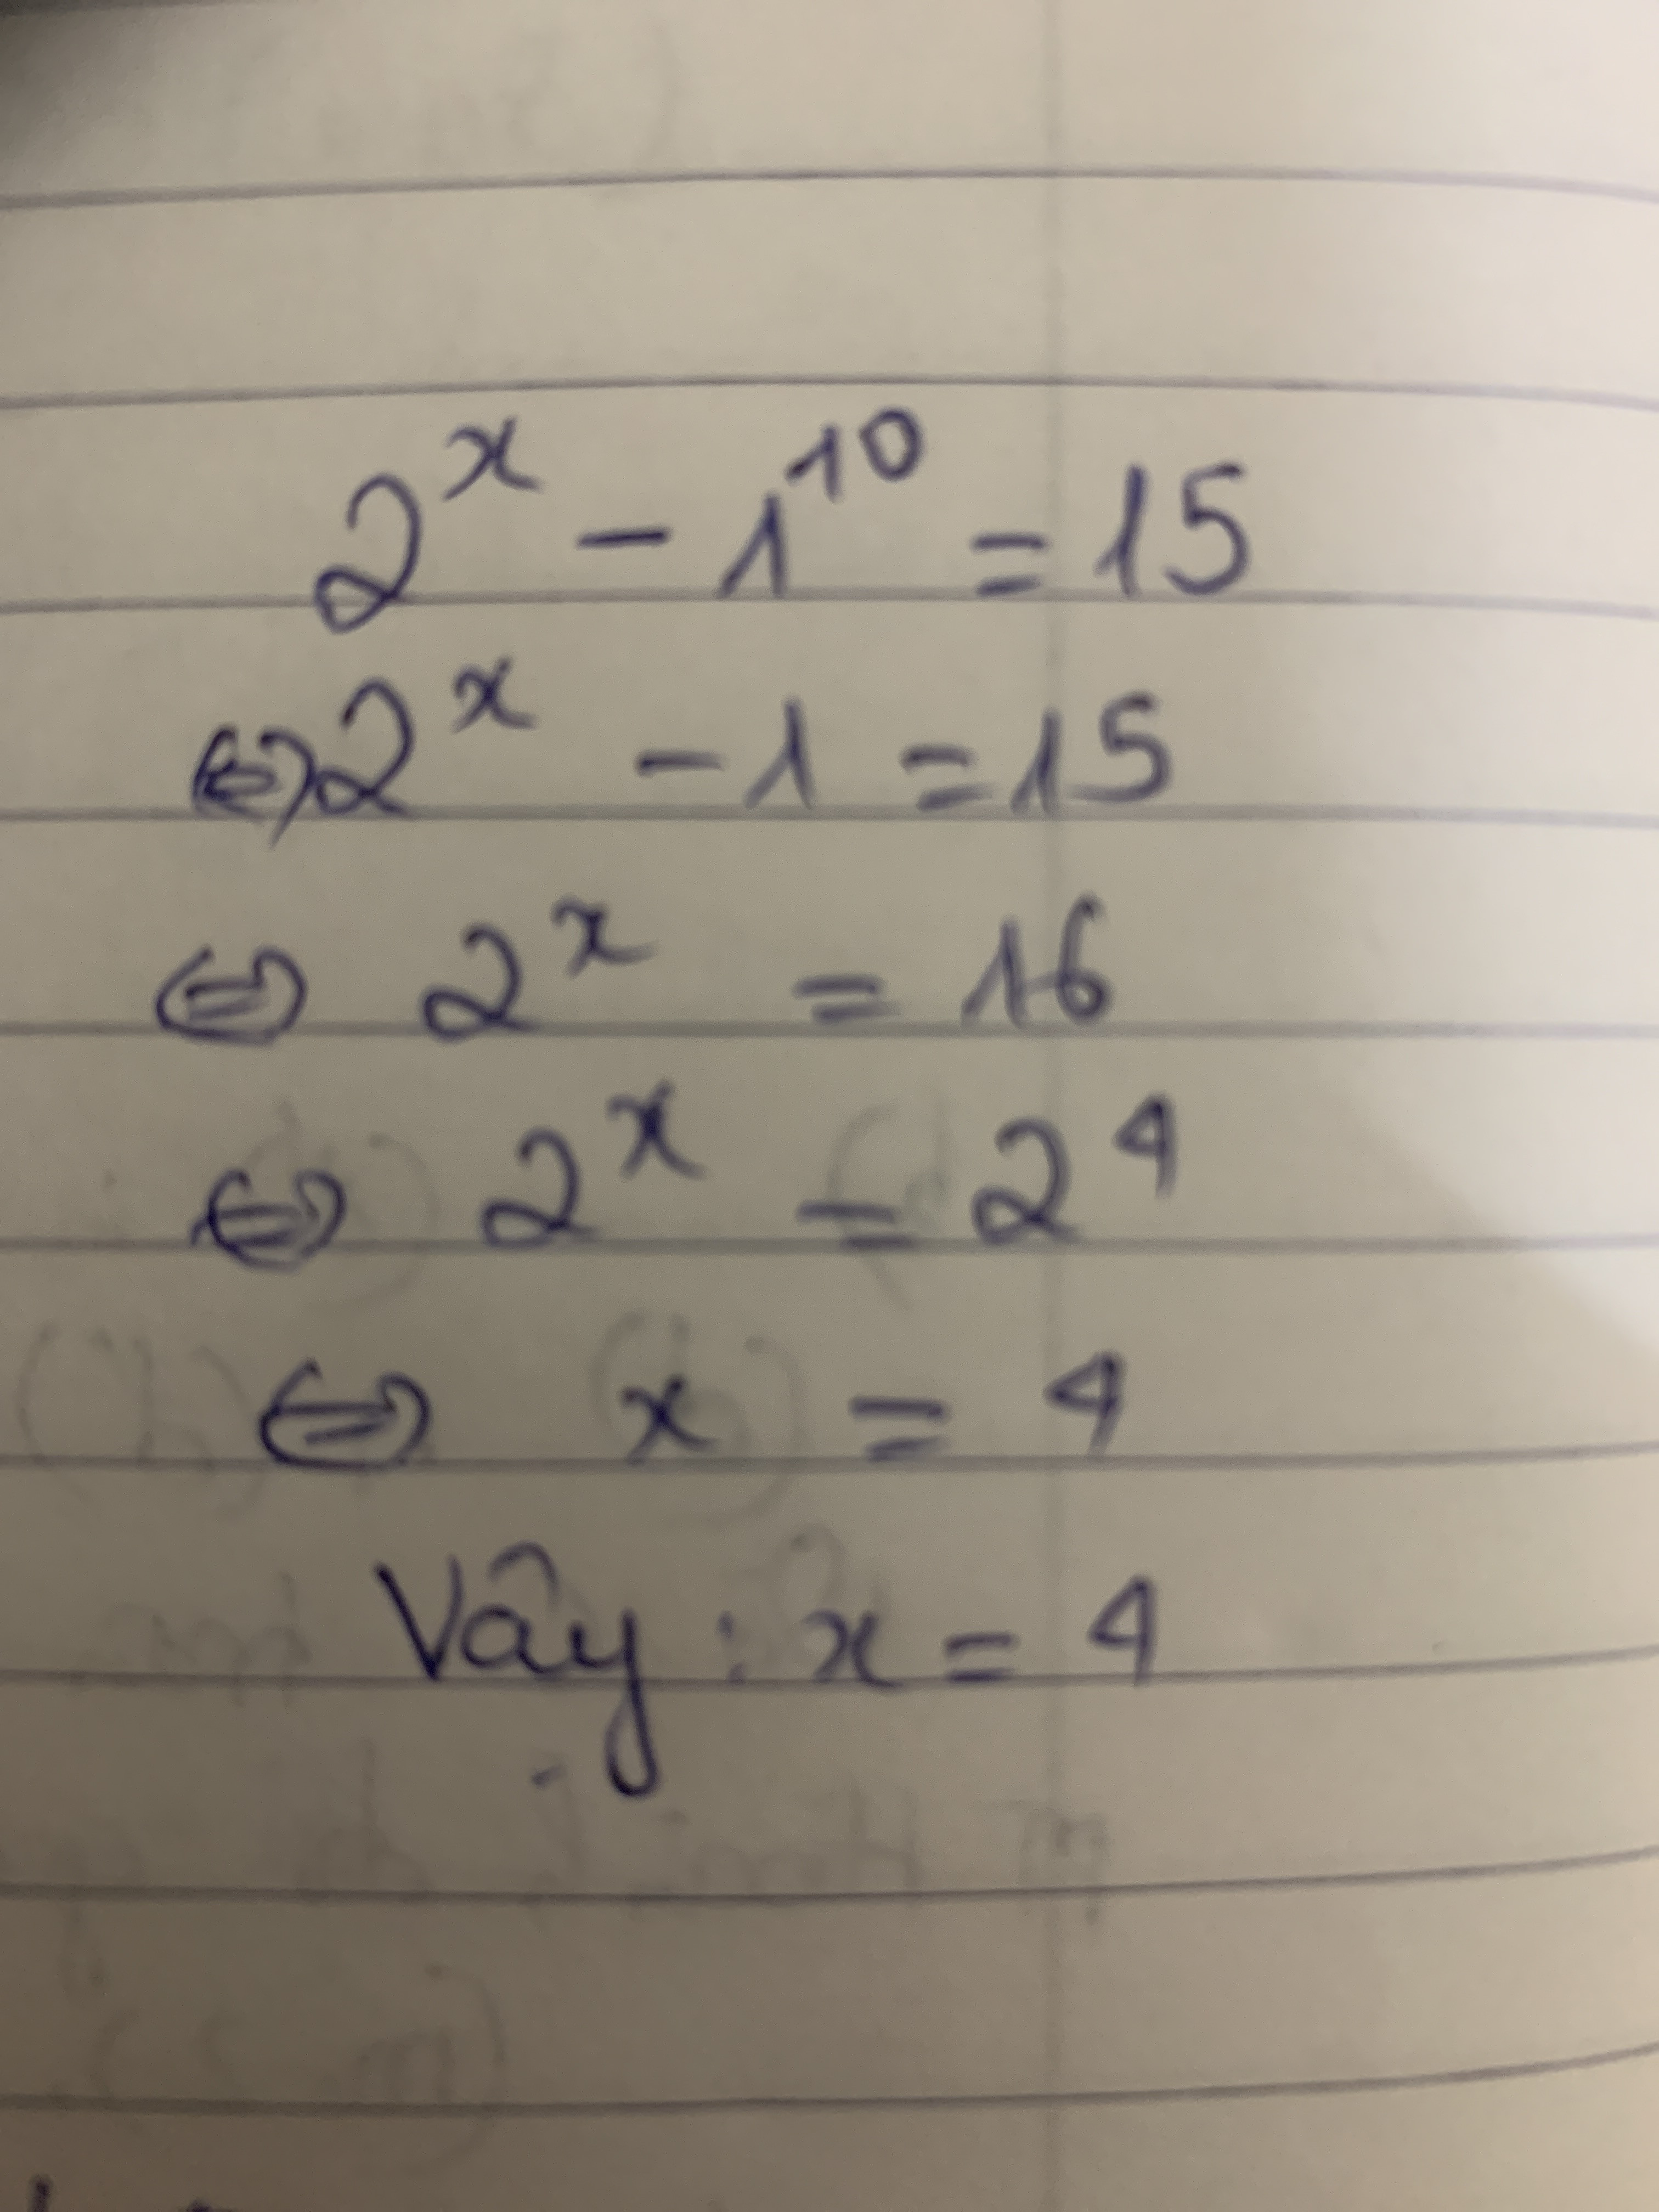 2^x - 1^10 = 15
⇔ 2^x - 1 = 15
⇔ 2^x = 16
⇔ 2^x = 2^4
⇔ x = 4
Vậy : x = 4